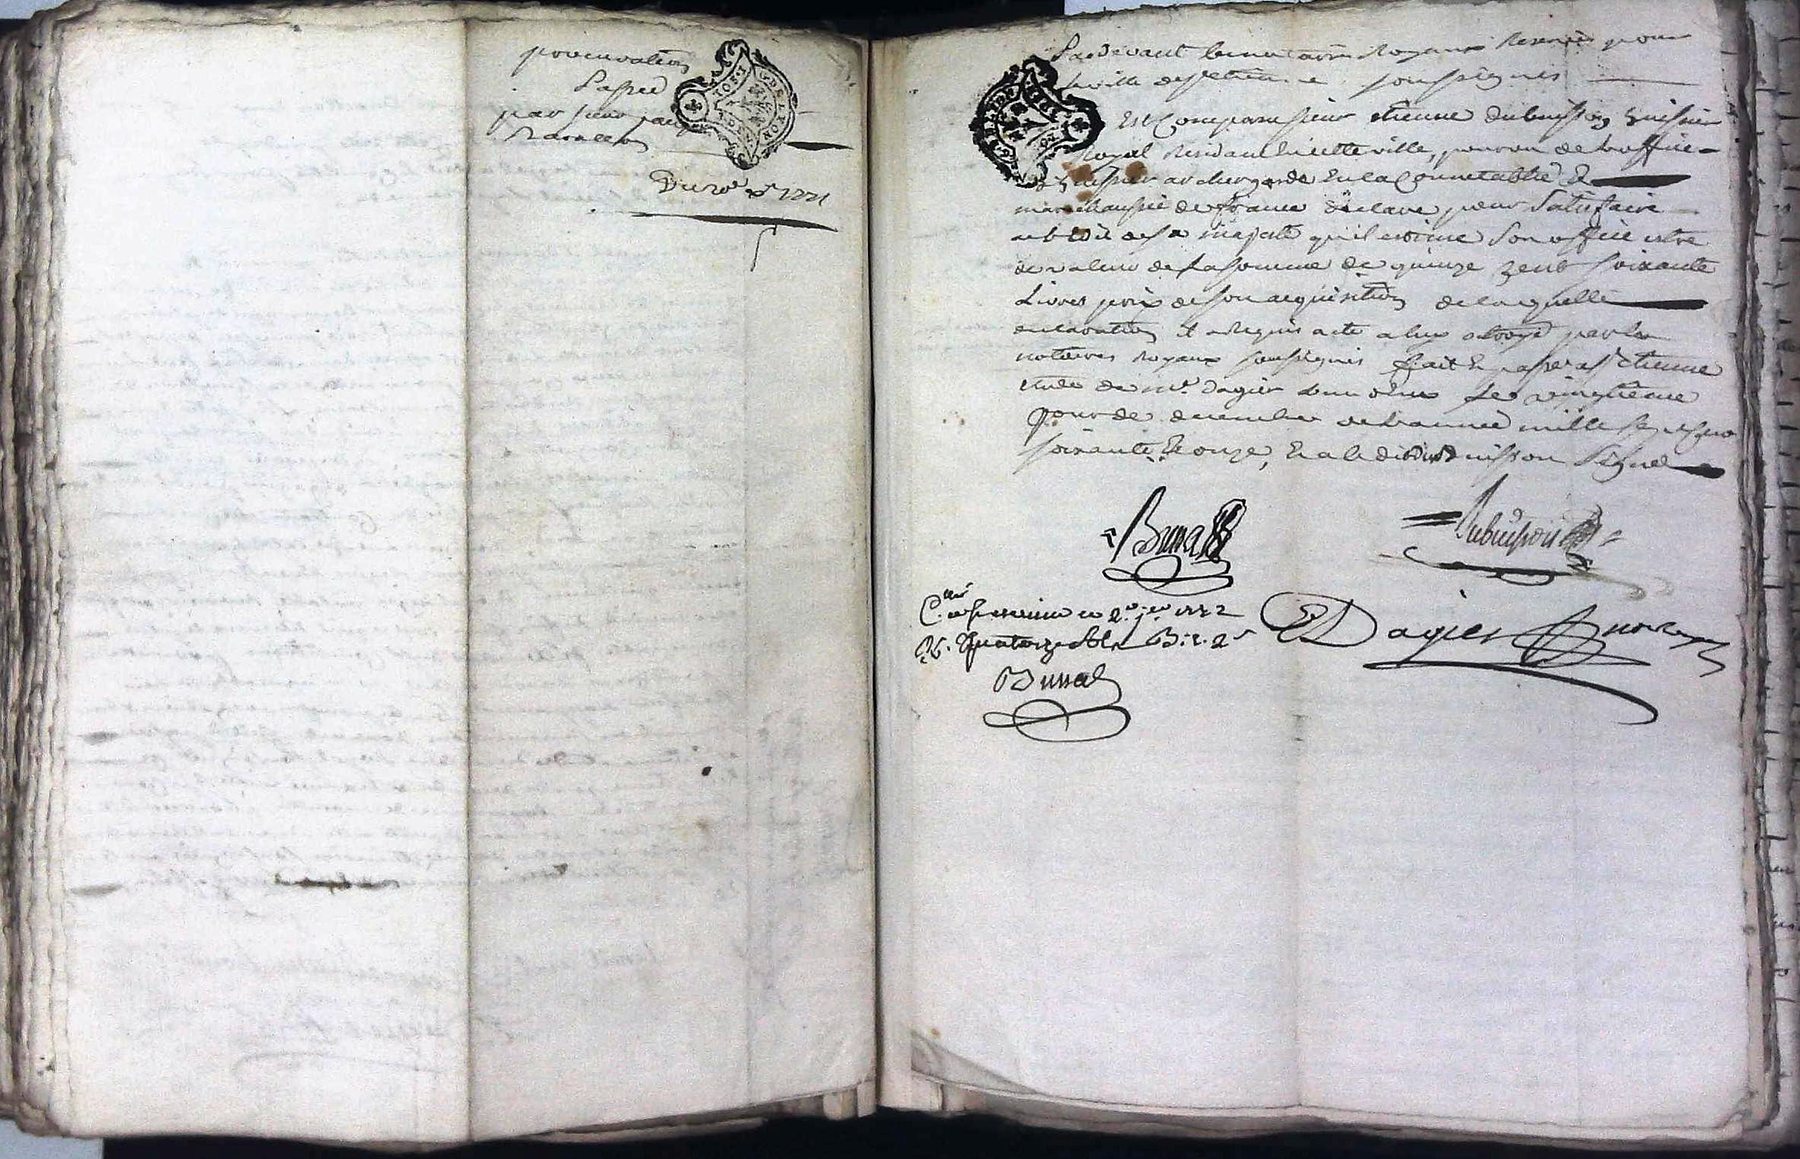 procuration
Passée
par sieur
Du 20e Xbre 1771
Pardevant les notaires Royaux Reservés pour
la ville de st etienne soussignés
Est Comparu sieur etienne dubuisson huissier
Royal Residant en cette ville, pourvu de l'office
d'huissier archer garde En la Connetablie &
marechaussée de france declare pour Satisfaire
a l'edit de sa majesté qu'il estime Son office estre
de valeur de la somme de quinze Cent soixante
Livres prix de son acquisition de laquelle
declaration il a Requis acte a luy octroyé par les
notaires Royaux soussignés fait & passé a st etienne
etude de me. Dagier l'un d'eux Le vingtieme
Jour de decembre de l'année mille sept cent
soixante & onze, Et a le dit dubuisson Signé
Bunal
Dubuisson
Clé a st etienne ce 2e. jer. 1772
R. Quatorze sols
Dagier no. Roy.
Bunal